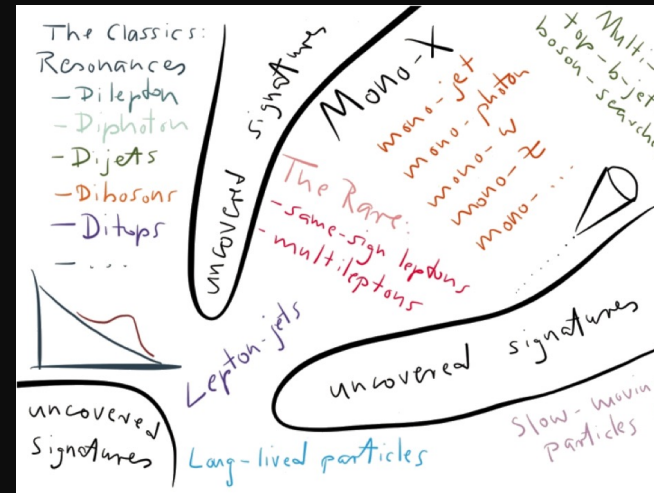 The Classics:
Resonances
- Dilepton
- Diphoton
- Dijets
- Dibosons
- Ditops
- ...
uncovered signatures
Mono-X
mono-jet
mono-photon
mono-w
mono-z
mono-...
Multi-
top-b-jet
boson-search
The Rare:
- same-sign leptons
- multileptons
Lepton-jets
uncovered signatures
uncovered
signatures
Long-lived particles
Slow-movin
particles